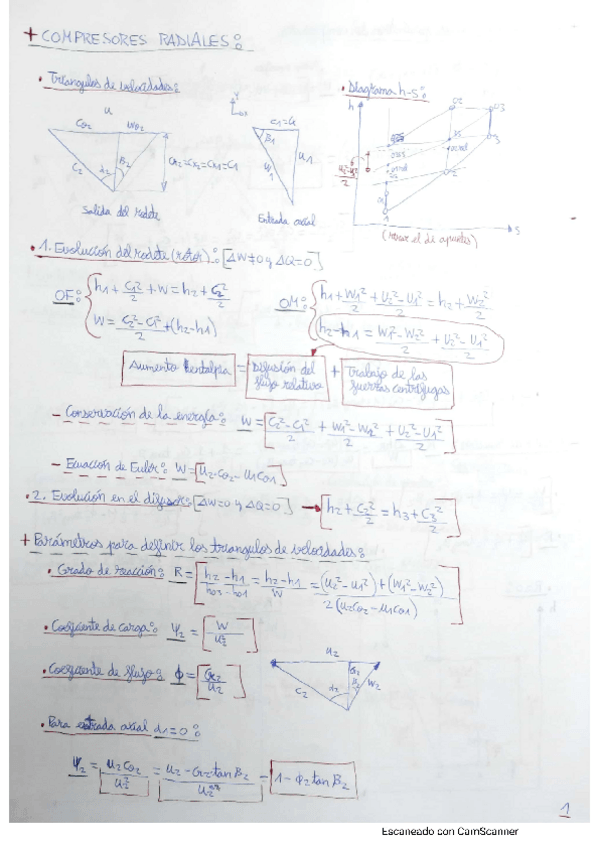 + COMPRESORES RADIALES:
• Triangulos de velocidades:
• Diagrama h-s:
u
Cθ2 Wθ2
C2 α2 β2
Cr2 = Cx2 = Cx1 = C1
Salida del rodete
C1 = Cx
β1
W1 u1
Entrada axial
h
s
(mirar el de apuntes)
• 1. Evolución del rodete (rotor): [ΔW≠0 y ΔQ=0]
OF: { h1 + C1²/2 + W = h2 + C2²/2
W = (C2² - C1²)/2 + (h2-h1)
OM: { h1 + (W1² + U2² - U1²)/2 = h2 + W2²/2
h2-h1 = (W1² - W2²)/2 + (U2² - U1²)/2
Aumento entalpía = Difusión del flujo relativo + Trabajo de las fuerzas centrífugas
- Conservación de la energía: W = [(C2² - C1²)/2 + (W1² - W2²)/2 + (U2² - U1²)/2]
- Ecuación de Euler: W = [u2·Cθ2 - u1Cθ1]
• 2. Evolución en el difusor: [ΔW=0 y ΔQ=0] → [h2 + C2²/2 = h3 + C3²/2]
+ Parámetros para definir los triangulos de velocidades:
• Grado de reacción: R = [(h2 - h1)/(h03 - h01) = (h2 - h1)/W = ((u2² - u1²) + (W1² - W2²))/(2(u2Cθ2 - u1Cθ1))]
• Coeficiente de carga: Ψ2 = [W/u2²]
• Coeficiente de flujo: ϕ = [Cr2/u2]
u2
C2 α2 β2 W2
• Para entrada axial α1=0:
Ψ2 = u2Cθ2/u2² = (u2 - Cr2 tan β2)/u2 = 1 - ϕ2 tan β2
1
Escaneado con CamScanner